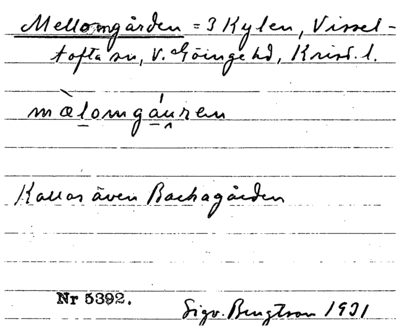 Mellomgården = 3 Kylen, Vissel-
tofta sn, V. Göinge hd, Krist. l.
màlomgáuren
Kallas även Backagården
Nr 5392.
Sigv. Bengtson 1931